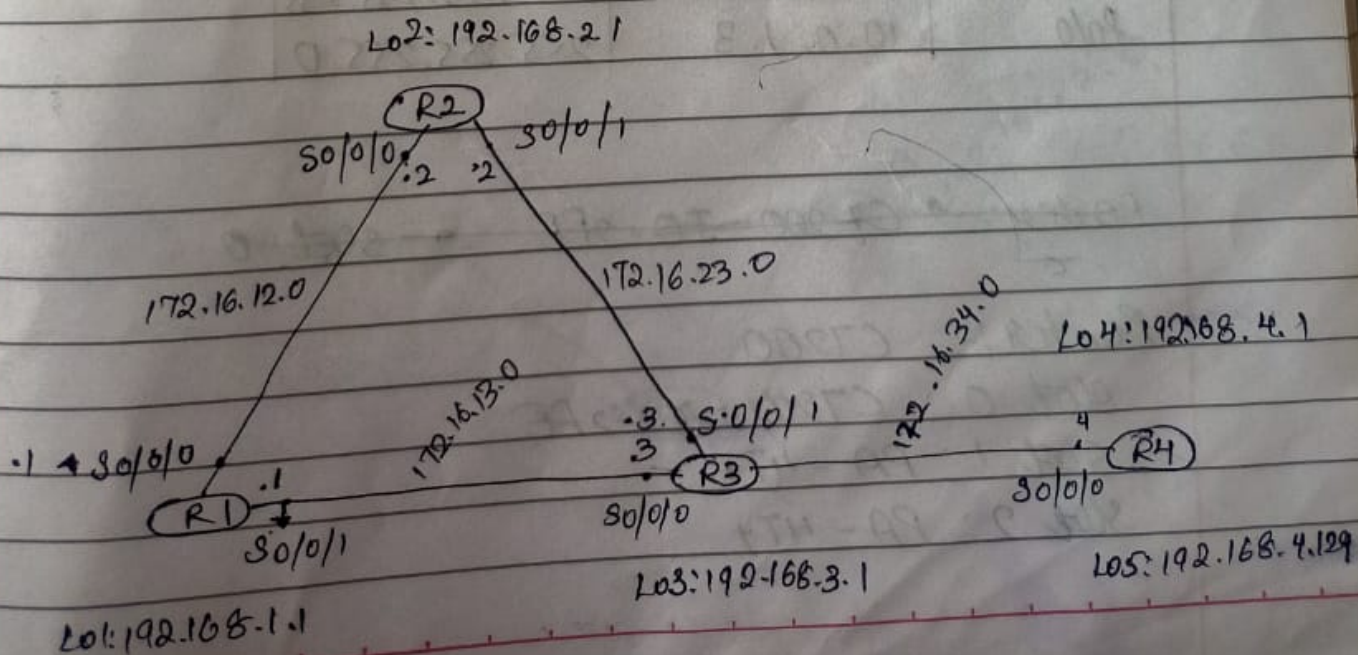 Lo2: 192.168.2 1
R2
S0/0/0
S0/0/1
.2
.2
172.16.12.0
172.16.23.0
172.16.13.0
172.16.34.0
Lo4: 192.168.4.1
.3.
S.0/0/1
.3
4
.1
S0/0/0
.1
R3
R4
R1
S0/0/0
S0/0/0
S0/0/1
Lo3: 192.168.3.1
Lo5: 192.168.4.129
Lo1: 192.168.1.1